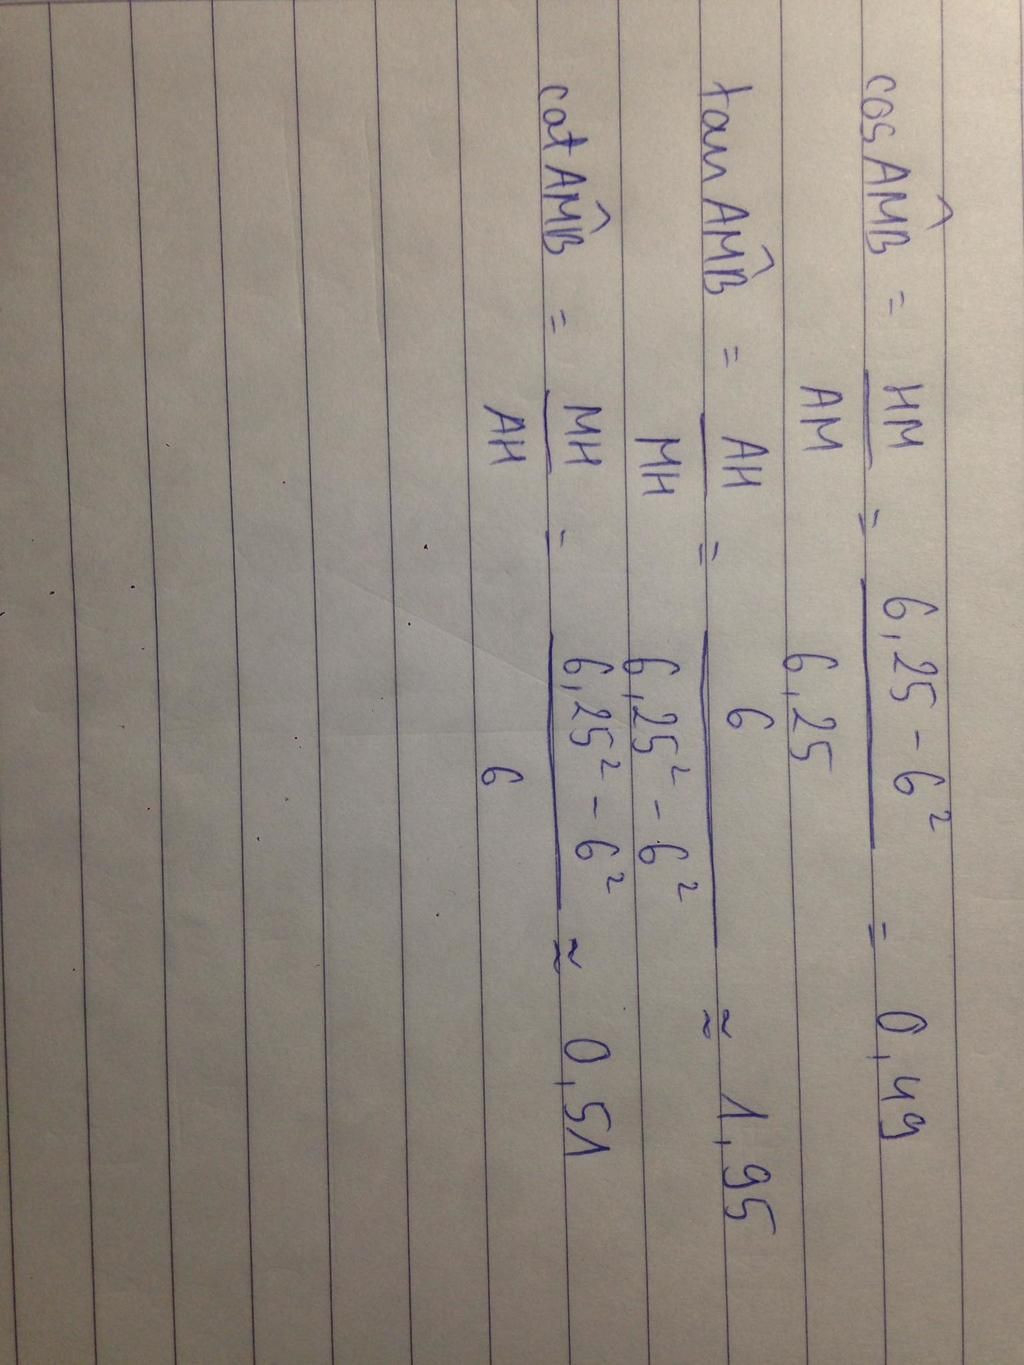 cos AM̂B = HM / AM = 6,25 - 6² / 6,25 = 0,49
tan AM̂B = AH / MH = 6 / 6,25² - 6² ≈ 1,95
cot AM̂B = MH / AH = 6,25² - 6² / 6 ≈ 0,51